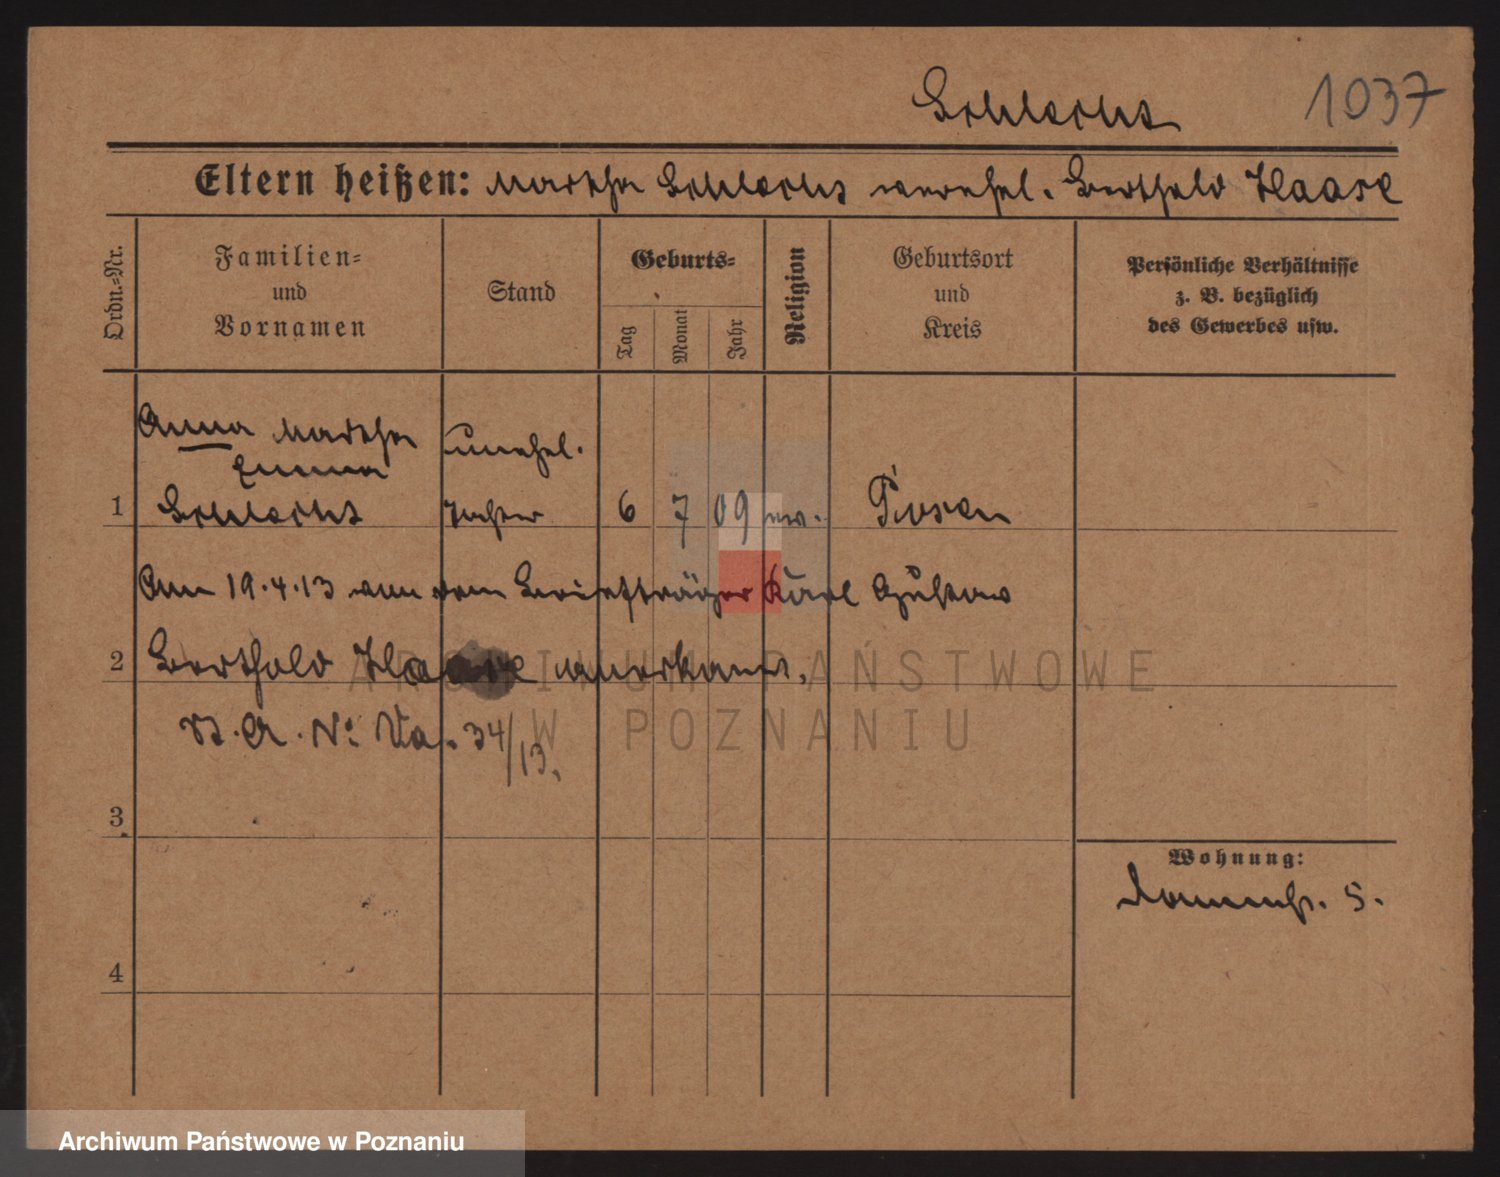 Schlecht 1037
Eltern heißen: Martha Schlecht verehel. Berthold Haase
Ordn.-Nr.
Familien-
und
Vornamen
Stand
Geburts-
Tag
Monat
Jahr
Religion
Geburtsort
und
Kreis
Persönliche Verhältnisse
z. B. bezüglich
des Gewerbes usw.
Anna Martha unehel.
Emma
1 Schlecht Tochter 6 7 09 ev. Posen
Am 19.4.13 von dem Briefträger Karl Gustav
2 Berthold Haase anerkannt.
St. A. No Va. 34/13.
3
Wohnung:
5.
4
ARCHIWUM PAŃSTWOWE
W POZNANIU
Archiwum Państwowe w Poznaniu